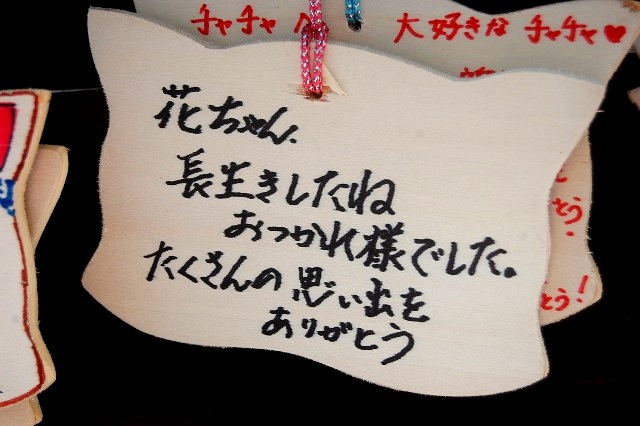 チャチャへ
大好きな チャチャ♥
花ちゃん、
長生きしたね
おつかれ様でした。
たくさんの思い出を
ありがとう
とう!